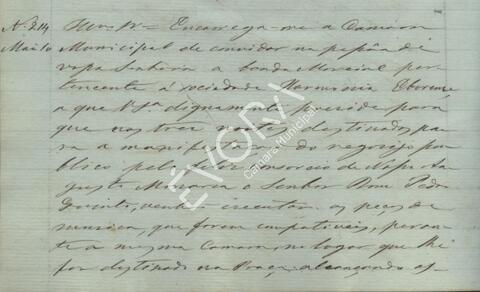 Nº 214 Illmo Sr = Encarrega-me a Camara
Maio Municipal de convidar na pessoa de
vossa Senhoria a banda Marcial per-
tencente á sociedade Harmonia Eborense
a que V. Sª dignamente preside para
que nas tres noites destinadas pa-
ra a manifestação do regosijo pu-
blico pelo consorcio de
gusto Monarca o Senhor Dom Pedro
Quinto, venha executar as peças de
musica, que forem compativeis, peran-
te a mesma Camara, no logar que lhe
for destinado na Praça, alcançando as-
ÉVORA
Câmara Municipal